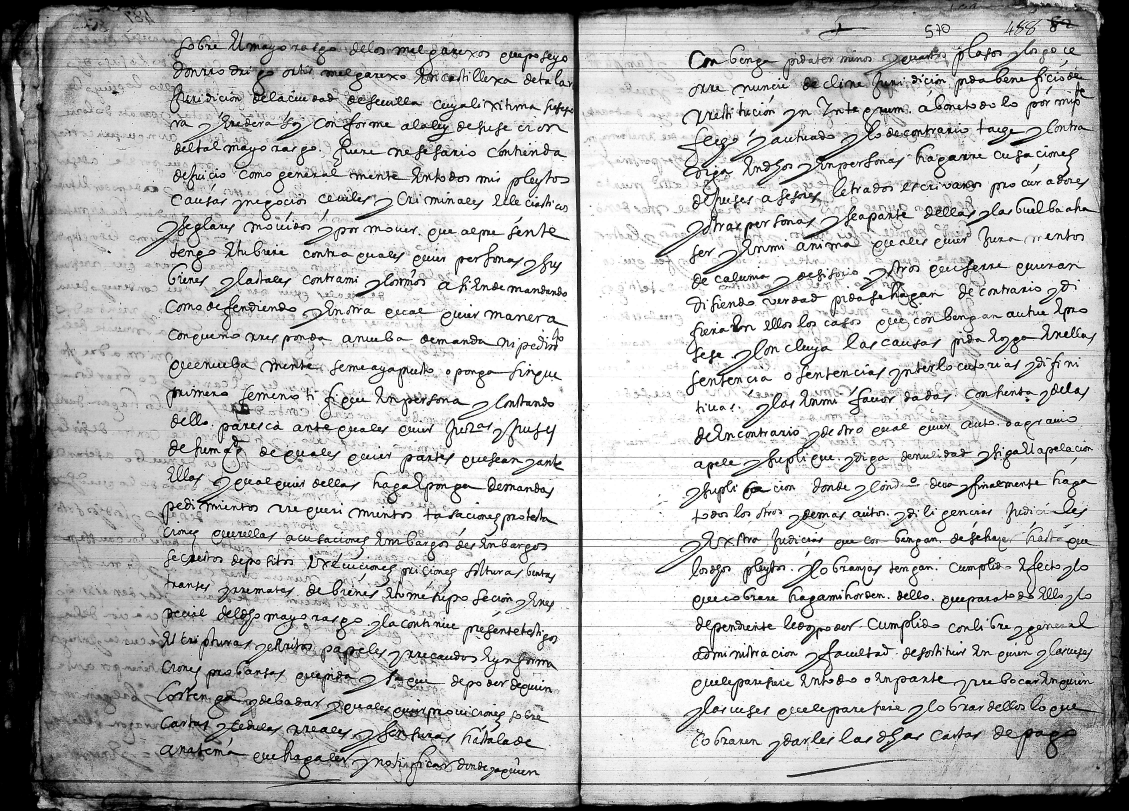 sobre El mayorasgo delos melgarexos que poseyo
don rrodrigo ortis melgarexo En castillexa de talar
Juridicion de la ciudad de seuilla cuya lixitima subseso
ra y Eredera soy conforme a la ley de susecion
del tal mayorasgo. fuere nesesario contienda
de juicio como general mente En todos mis pleytos
causas y negocios ceuiles y criminales Ecleciasticos
y seglares mouidos y por mouer. que al pre sente
tengo E tubiere contra quales quier personas y sus
bienes y las tales contra mi y los mios asi En demandando
como defendiendo y En otra qual quier manera
con que no rresponda a nueba demanda ni pedimto
que nueba mente se me aya puesto o ponga sin que
primero se me notifique En persona y constando
dello. paresca ante quales quier Juezes y Juses
de su magd de quales quier partes que sean y ante
Ellas y qual quier dellas haga E ponga Demandas
pedimientos rrequerimientos sitaciones protesta
ciones querellas acusaciones Enbargos desEnbargos
secrestos depositos Execuciones priciones solturas bentas
trantes y rremates. de bienes E tome su posecion y En es
pecial del dho mayorasgo. y la continue presente testigos
Escripturas y Escritos papeles y rrecaudos E ynforma
ciones prouansas que pida y saque de poder de quien
los tenga y deba dar y quales quier prouiciones sobre
cartas y sedulas rreales y sensuras hasta la de
anatema que haga ler y notificar donde ya quien

570 488
Con benga pida terminos y quartos plasos y los go ce
o rre nuncie decline Juridicion pida beneficio de
rrestitucion yn Integrum. abone todo lo por mi pte
fecho y autuado y lo de contrario tache y contra
diga En dhos y En personas haga rrecusaciones
de juses asesores letrados escriuanos procuradores
y otras personas y se aparte dellas y las buelba aha
ser y En mi anima quales quier Juramentos
de calunia y desisorio y otros que se rrequieran
disiendo verdad pida se hagan de contrario y di
fiera En ellos los casos que conbengan autue E pro
sese y concluya las causas pida E oyga En ellas
sentencia o sentencias ynterlocutorias y difini
tiuas. y las En mi fauor dadas consienta y de las
de En contrario y de otro qual quier auto. de agrauio
apele y suplique y diga de nulidad y siga El apelacion
y suplicacion donde y con dro deua y finalmente haga
todos los otros y demas autos. y diligencias Judiciales
y Extra Judiciales que conbengan. de se haser hasta que
los dhos pleytos. y cobransas tengan. cumplido Efecto y lo
que cobrare haga mi horden. dello. que para todo Ello y lo
dependiente le doy poder cumplido con libre y general
administracion y facultad de sostituir En quien y las veses
que le paresiere En todo o En parte y rrebocar En quien
y las veses que le paresiere y lo bras dellos lo que
cobraren y darles las dhas cartas de pago